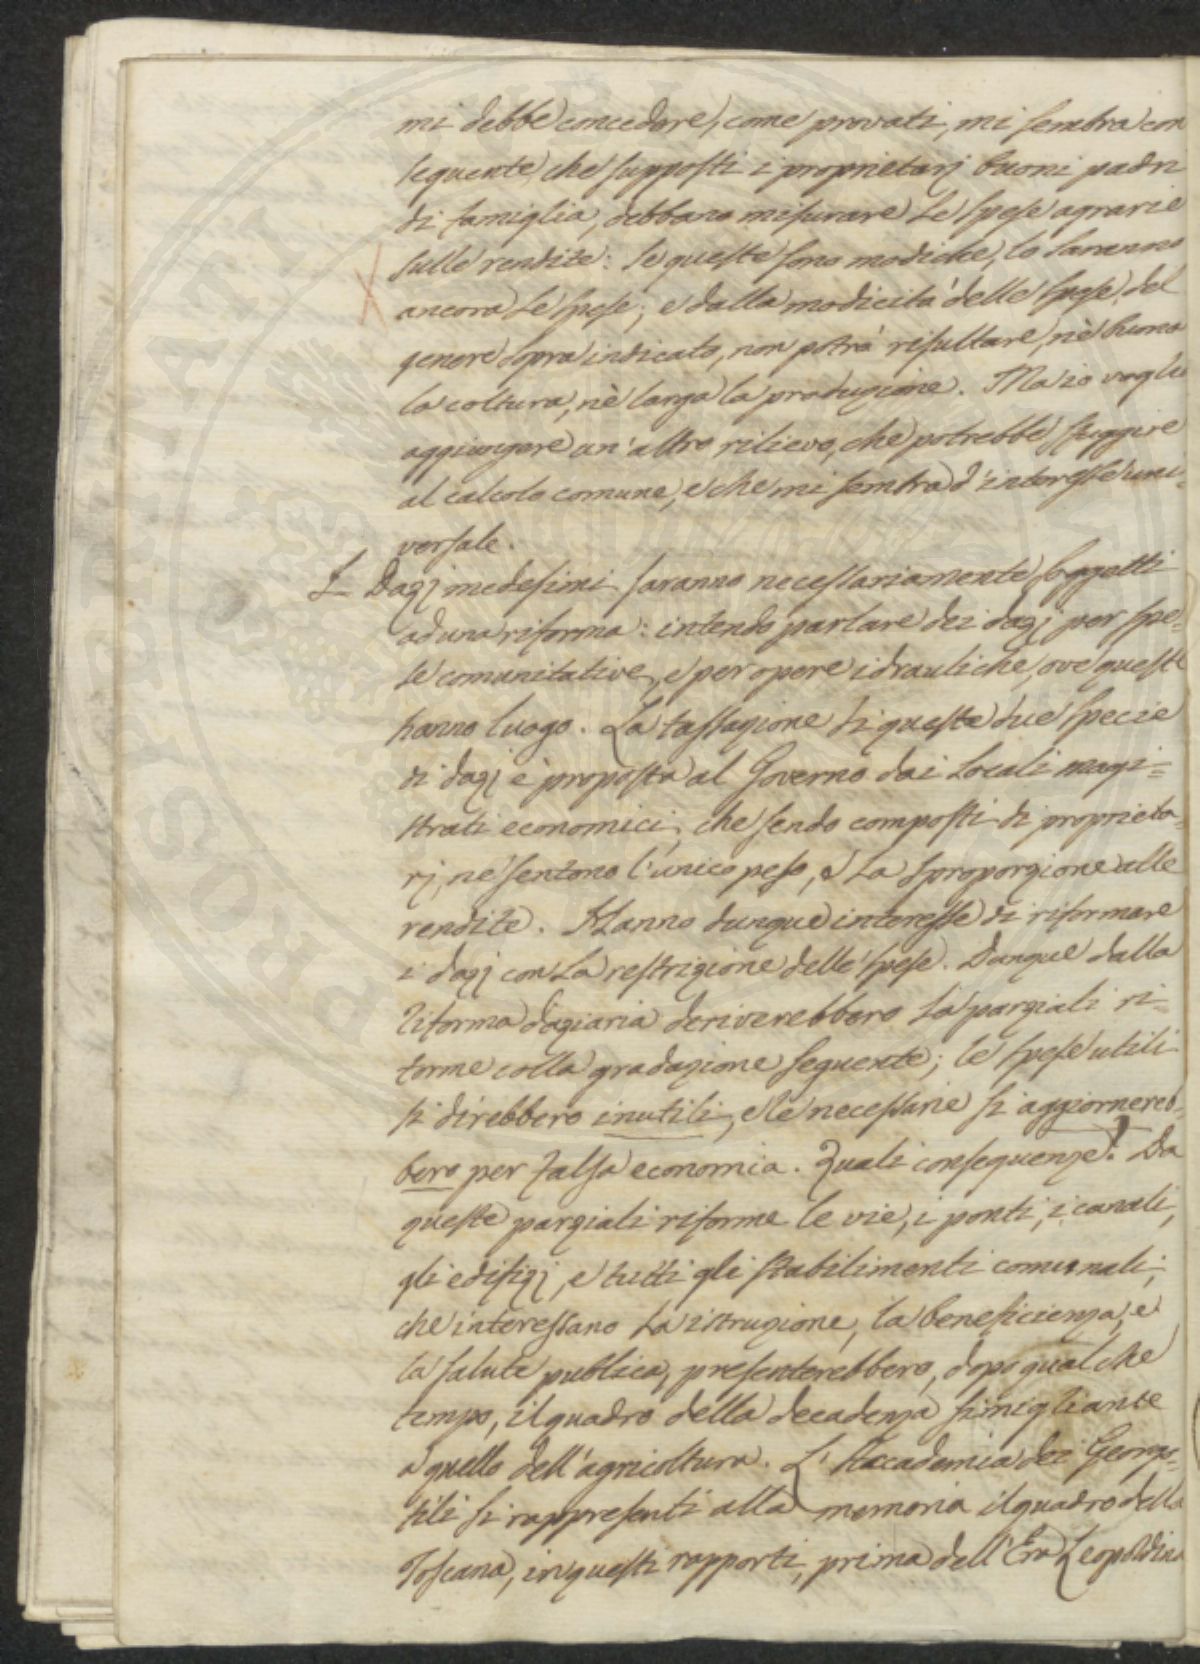 mi debbe concedere, come provati, mi sembra con
seguente, che supposti i proprietarj buoni padri
di famiglia, debbano misurare le spese agrarie
sulle rendite: se queste sono modiche, lo saranno
ancora le spese; e dalla modicità delle spese, del
genere sopra indicato, non potrà risultare, nè buona
la coltura, nè larga la produzione. Ma io voglio
aggiungere un'altro rilievo, che potrebbe fuggire
al calcolo comune, e che mi sembra d'interesse uni-
versale.
I Dazj medesimi saranno necessariamente soggetti
ad una riforma: intendo parlare dei dazj per spe=
se comunitative, e per opere idrauliche, ove queste
hanno luogo. La tassazione di queste due specie
di dazj è proposta al Governo dai locali magi=
strati economici, che sendo composti di proprieta-
rj, ne sentono l'unico peso, e la sproporzione alle
rendite. Hanno dunque interesse di riformare
i dazj con la restrizione delle spese. Dunque dalla
riforma daziaria deriverebbero le parziali ri-
forme colla gradazione seguente; le spese utili
si direbbero inutili, e le necessarie si aggiornereb-
bero per falsa economia. Quali conseguenze! Da
queste parziali riforme le vie, i ponti, i canali,
gli edifizj, e tutti gli stabilimenti comunali,
che interessano la istruzione, la beneficienza, e
la salute publica, presenterebbero, dopo qualche
tempo, il quadro della decadenza simigliante
a quello dell'agricoltura. L'Accademia dei Georgo=
fili si rappresenti alla memoria il quadro della
Toscana, in questi rapporti, prima dell'Era Leopoldina
PROSPERITATI PUBL